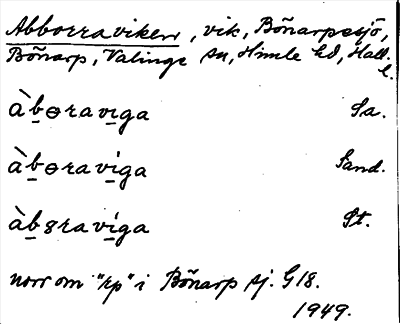 Abborraviken, vik, Bönarpssjö,
Bönarp, Valinge sn, Himle hd, Hall. l.
àb̲ɵravi̲ga Sa.
àb̲ɵravi̲ga Sand.
àb̲8ravi̲ga St.
norr om "rp" i Bönarp sj. G18.
1949.